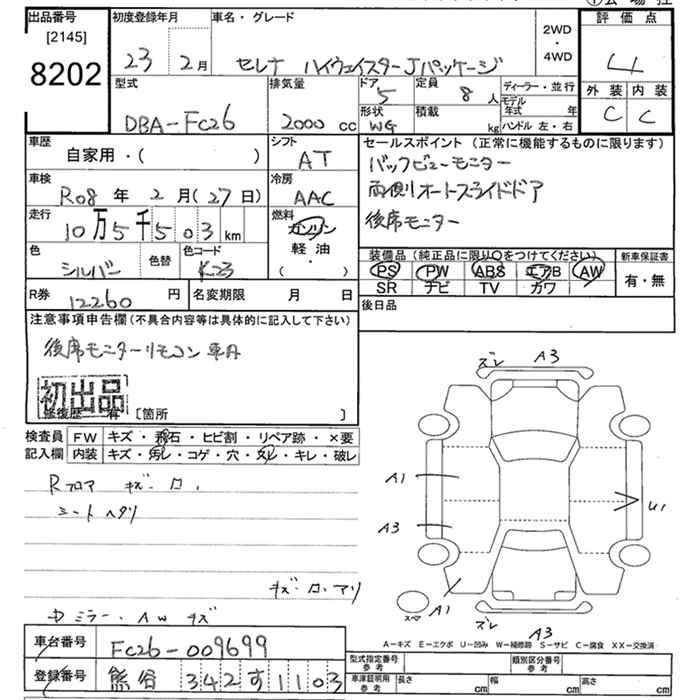 出品番号
[2145]
8202
初度登録年月
23 2月
車名・グレード
セレナ ハイウェイスターJパッケージ
2WD
・
4WD
評価点
4
型式
DBA-FC26
排気量
2000 cc
ドア
5
定員
8人
形状
WG
積載
kg
ディーラー・並行
モデル
年式 年
ハンドル 左・右
外装 内装
C C
車歴
自家用・( )
シフト
AT
セールスポイント(正常に機能するものに限ります)
バックビューモニター
両側オートスライドドア
後席モニター
車検
R08年2月(27日)
冷房
AAC
走行
10万5千503km
燃料
ガソリン
軽油・
( )
色
シルバー
色替
色コード
K23
装備品(純正品に限り○をつけてください)
PS PW ABS エアB AW
SR ナビ TV カワ
新車保証書
有・無
R券
12260円
名変期限 月 日
後日品
注意事項申告欄(不具合内容等は具体的に記入して下さい)
後席モニターリモコン車内
初出品
修復歴 有 [箇所 ]
検査員
記入欄
FW キズ・飛石・ヒビ割・リペア跡・×要
内装 キズ・汚レ・コゲ・穴・スレ・キレ・破レ
Rフロア キズ・ロ.
シートヘタリ
キズ・ロ.アリ
中ミラー.AWキズ
ズレ A3
A1
A3
U1
A1
スペア
ズレ
A3
A-キズ E-エクボ U-凹み W-補修跡 S-サビ C-腐食 XX-交換済
車台番号
FC26-009699
登録番号
熊谷 342す1103
型式指定番号
参考
類別区分番号
参考
車庫証明用
参考
長さ cm 幅 cm 高さ cm